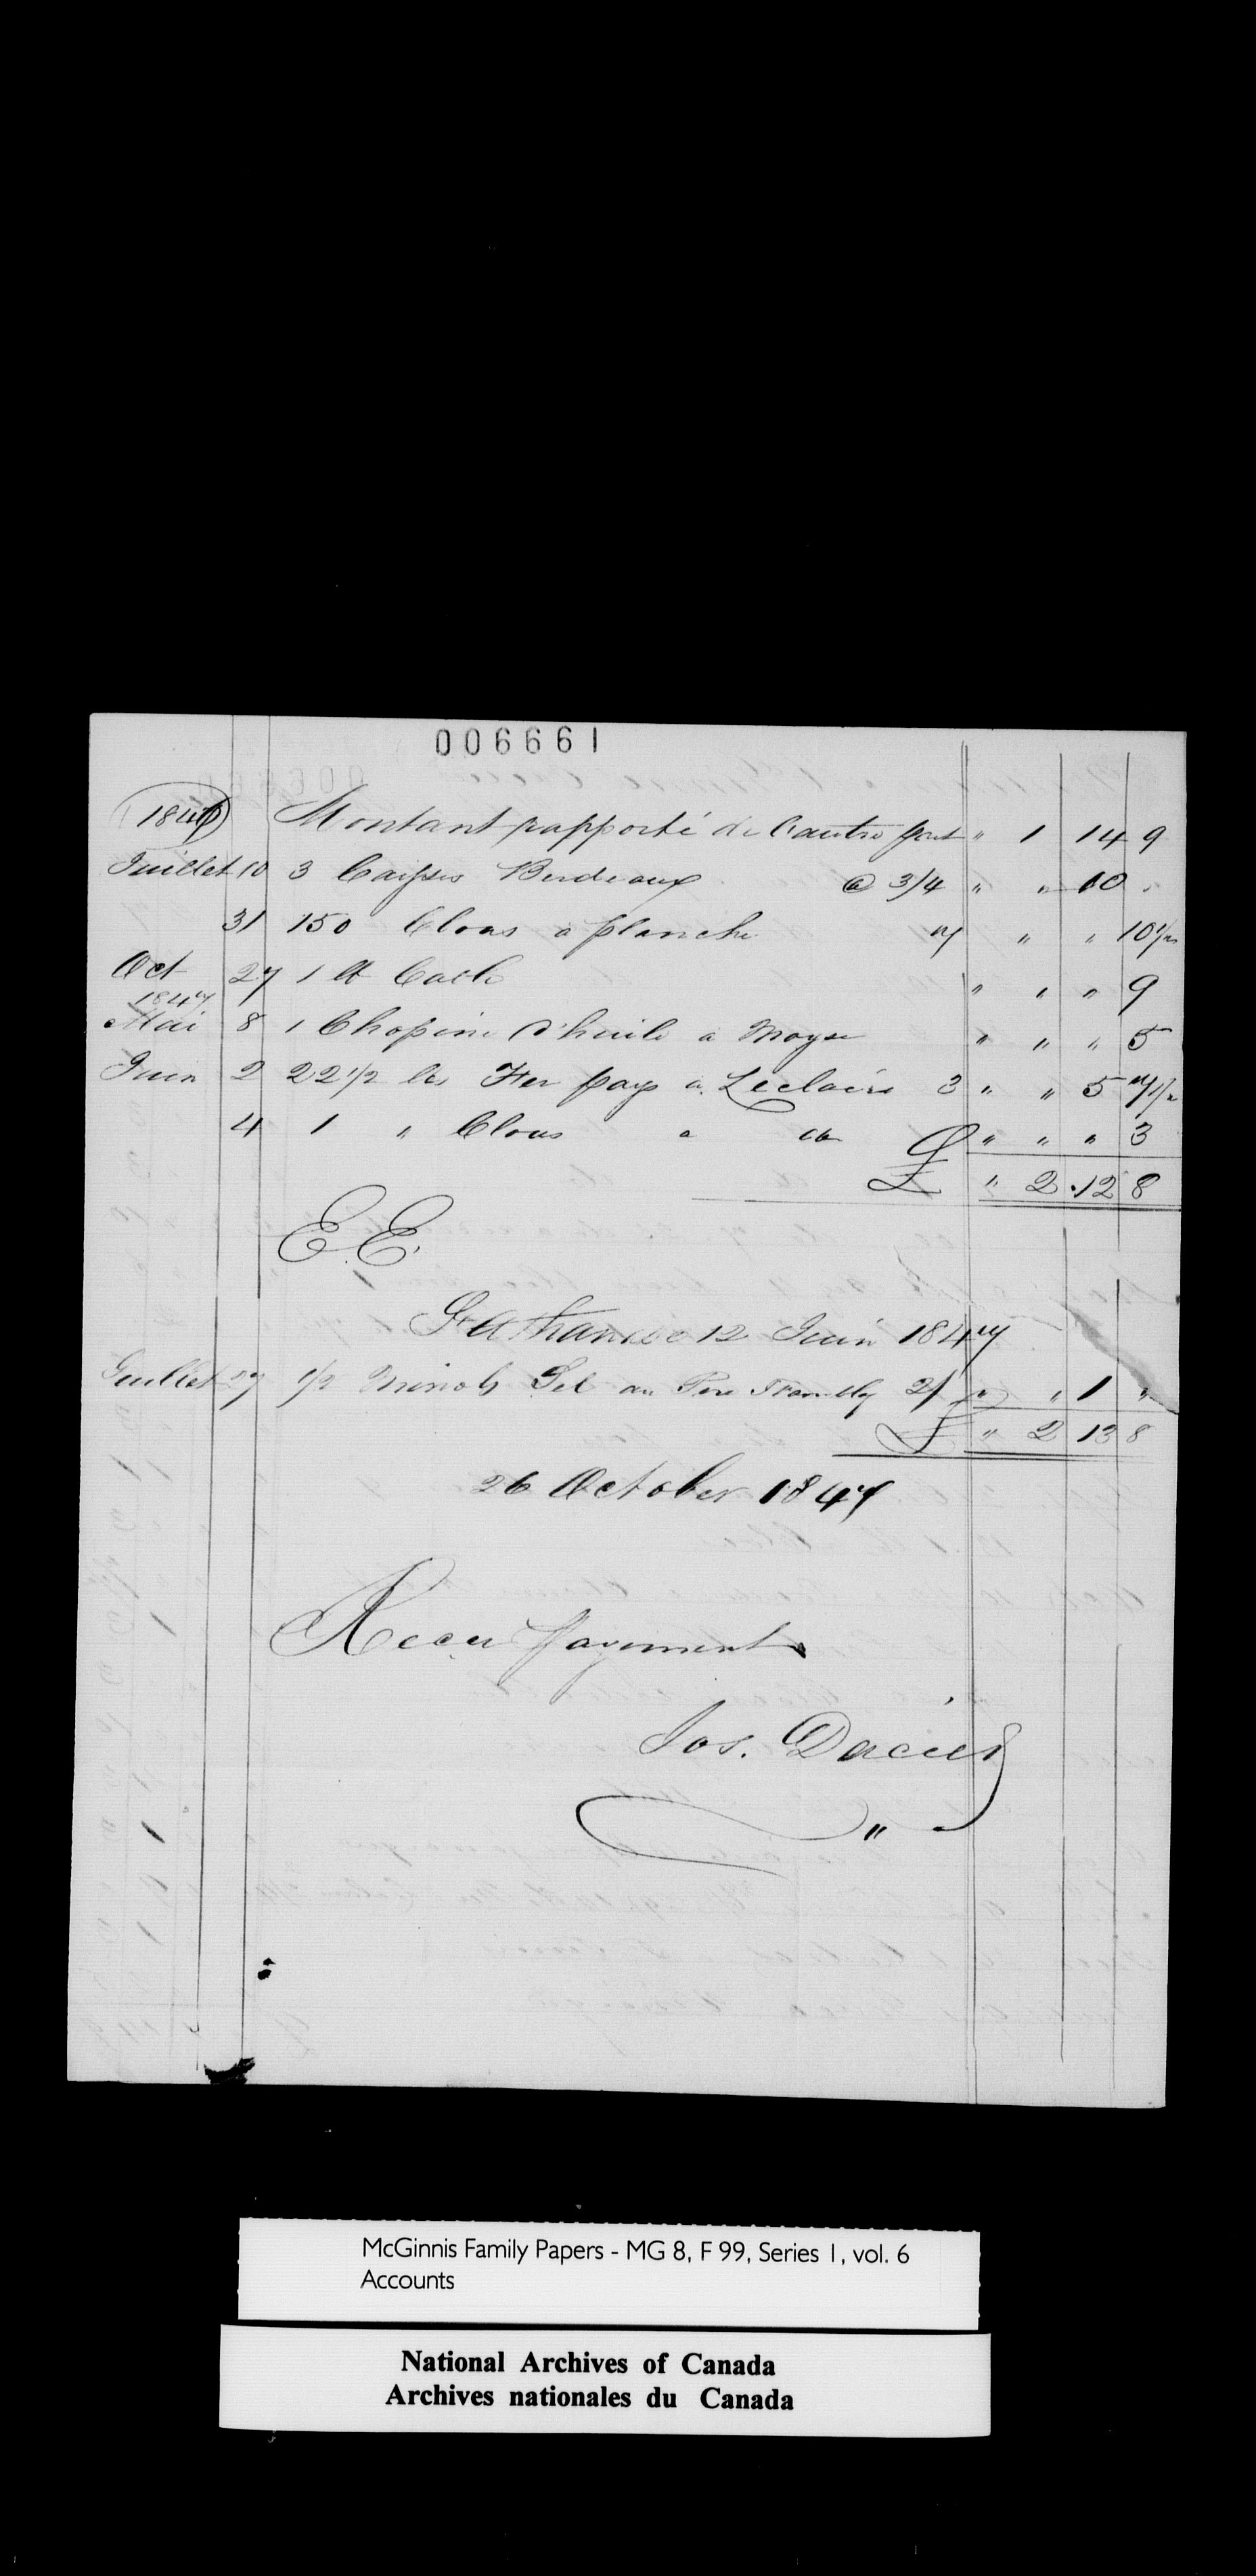 006661
1846 Montant rapporté de l'autre part " 1 14 9
Juillet 10 3 Caisses Bordeaux @ 3/4 " " 10 "
31 150 Clous a planche 7 " " 10 1/2
Oct 27 1 lt " " " 9
1847
Mai 8 1 Chopine d'huile a Moyse " " " 5
Juin 2 22 1/2 lbs Fer pays a Leclaire 3 " " 5 7 1/2
4 1 " Clous a do " " " 3
£ " 2 12 8
E.E.
St Athanase 12 Juin 1847
Juillet 27 1/2 Minots Sel au Père 2/ " " 1 "
£ " 2 13 8
26 October 1847
Recu payement
Jos.
McGinnis Family Papers - MG 8, F 99, Series 1, vol. 6
Accounts
National Archives of Canada
Archives nationales du Canada